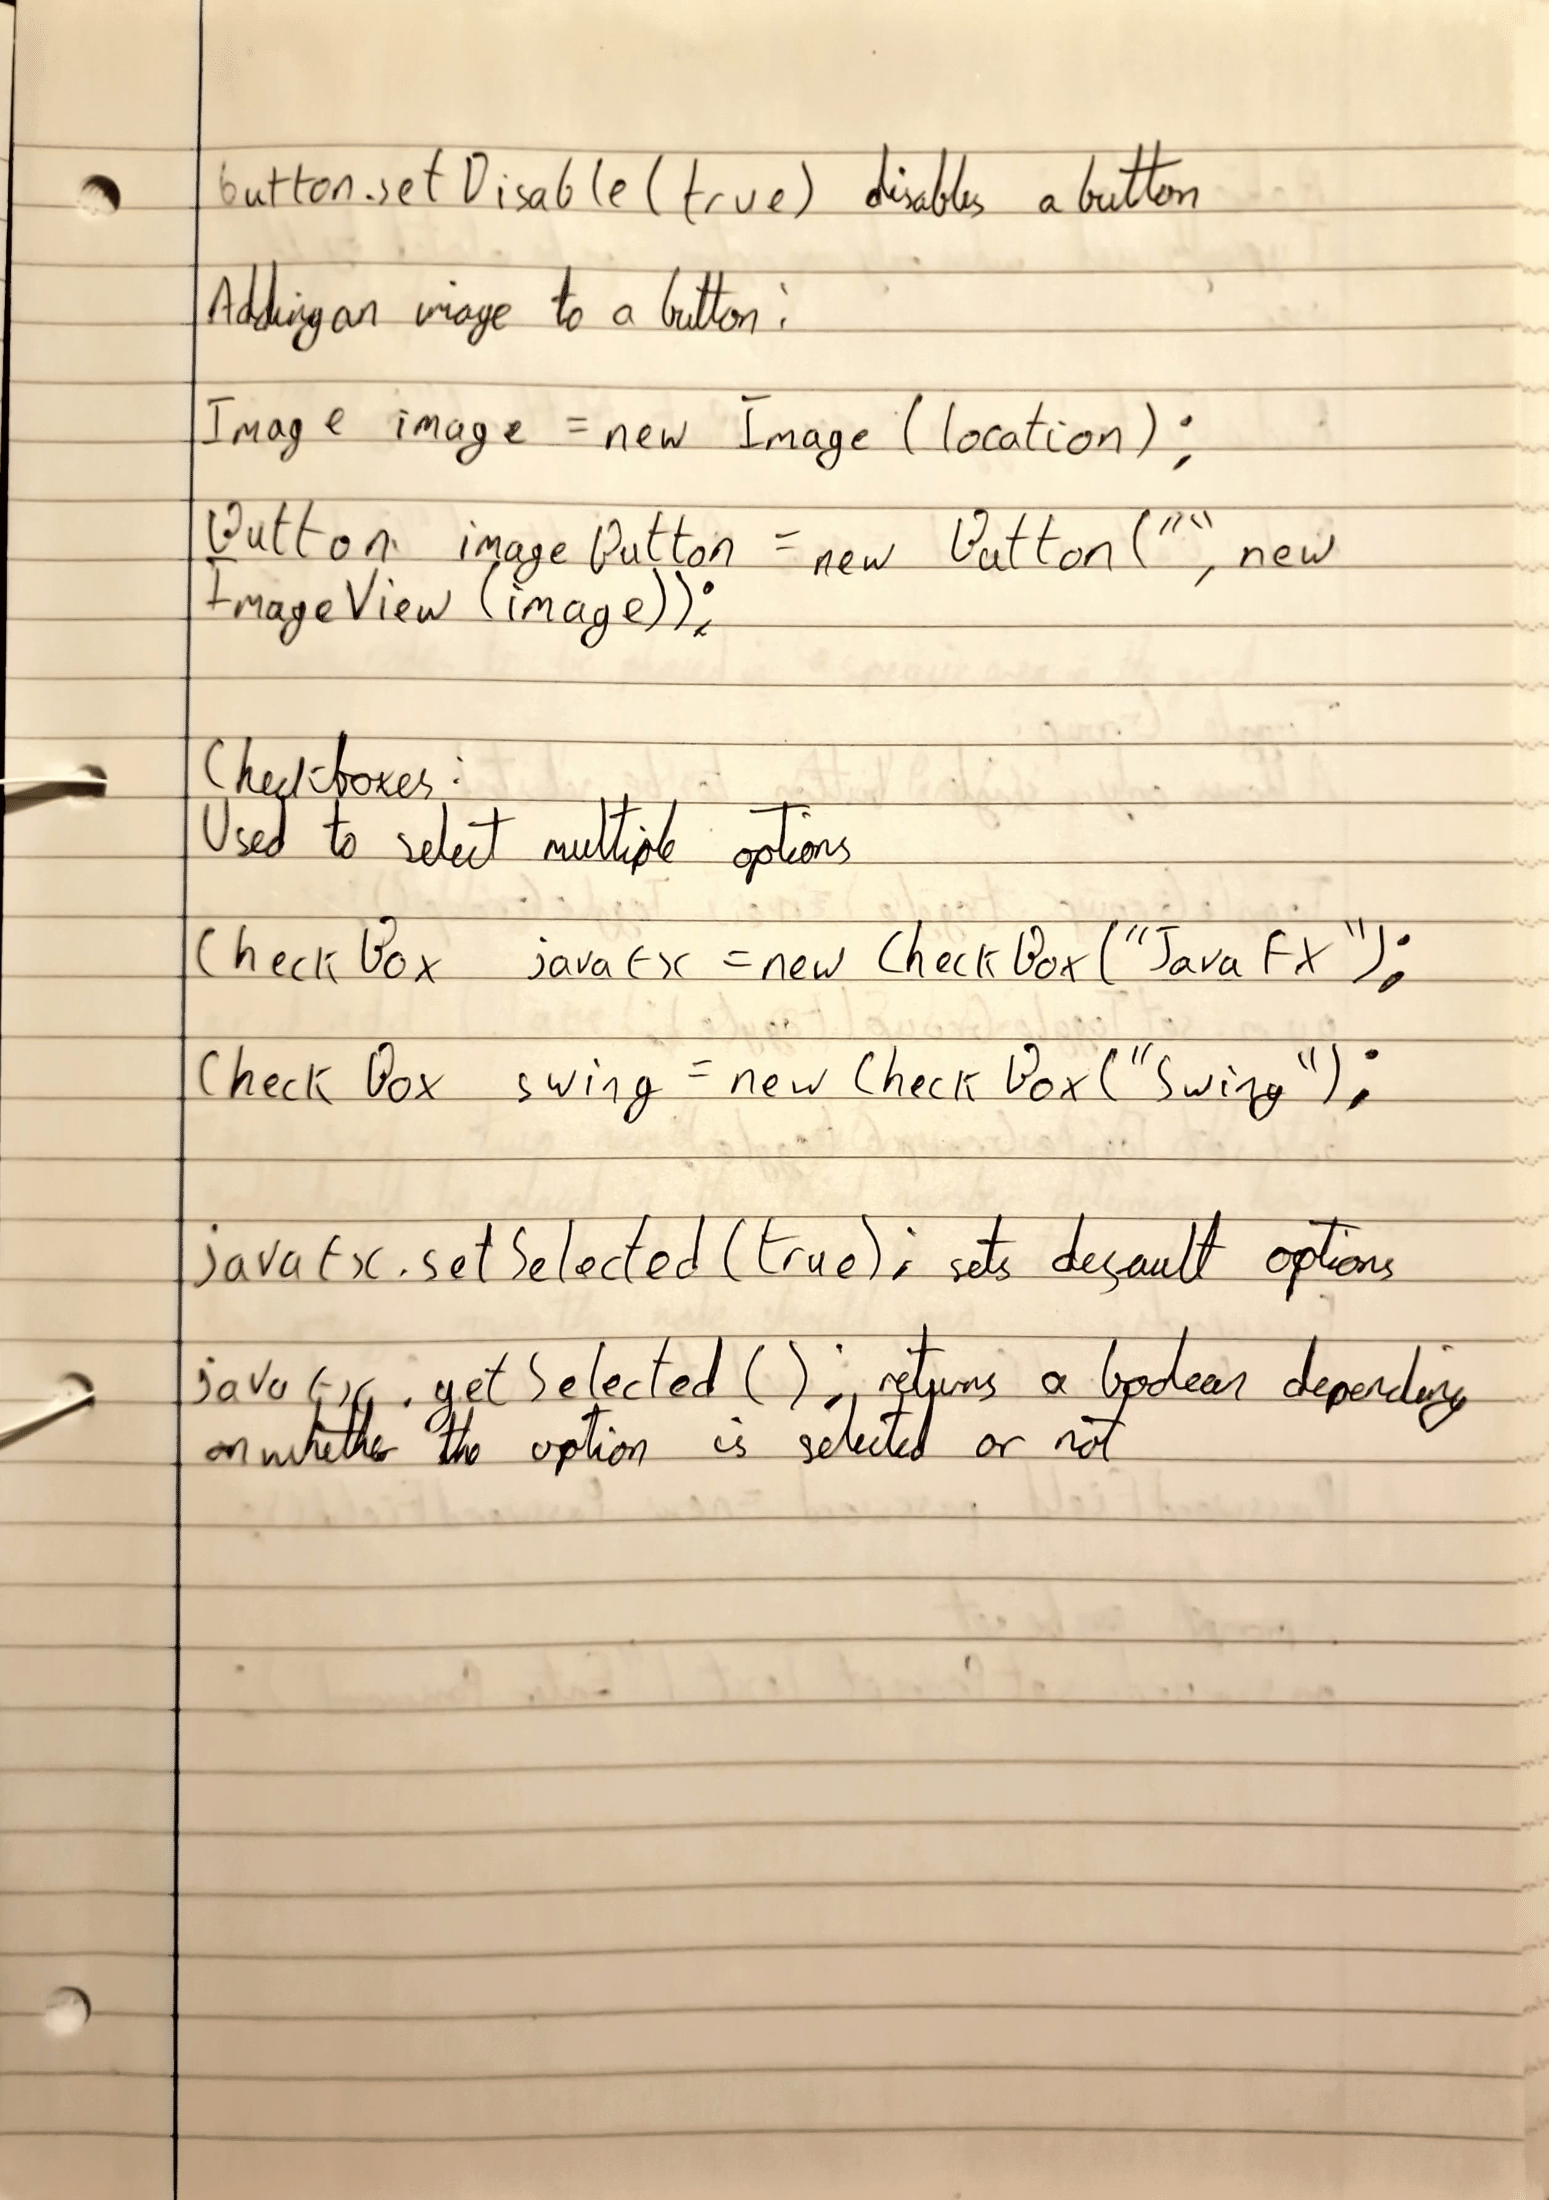 button.setDisable(true) disables a button
Adding an image to a button:
Image image = new Image(location);
Button imageButton = new Button("", new
ImageView(image));
Checkboxes:
Used to select multiple options
CheckBox javaFx = new CheckBox("JavaFX");
CheckBox swing = new CheckBox("Swing");
javaFx.setSelected(true); sets default options
javaFx.getSelected(); returns a boolean depending
on whether the option is selected or not